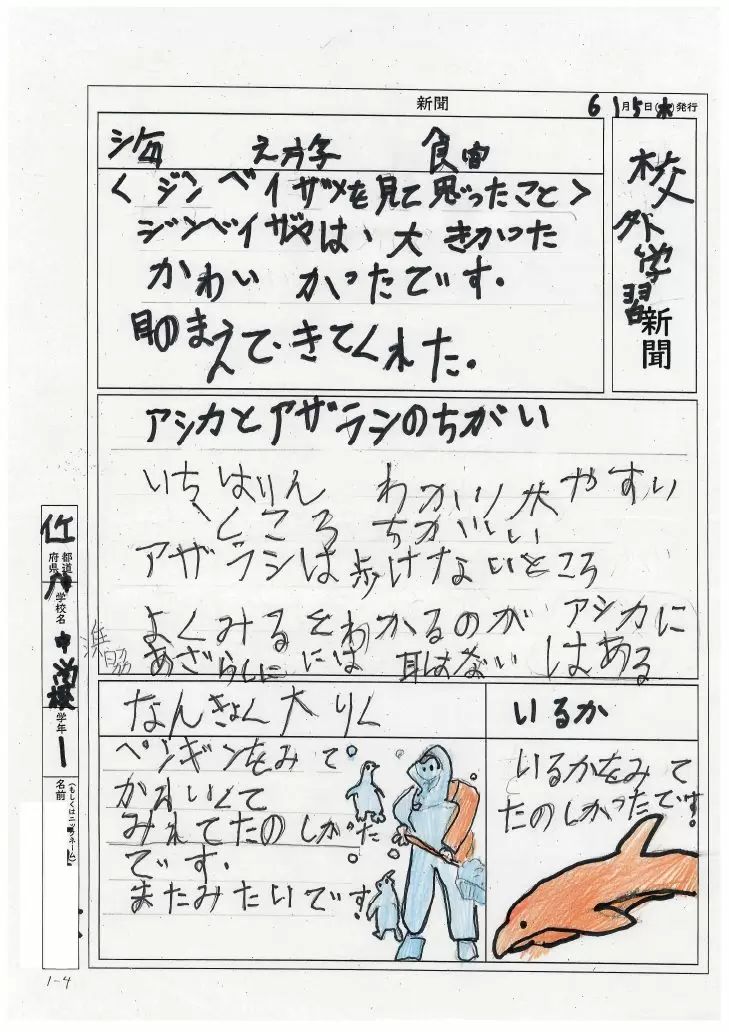 新聞
6月5日(水)発行
校外学習
新聞
海
<ジンベイザメを見て思ったこと>
ジンベイザメは、大きかった
かわいかったです。
目のまえんで、きてくれた。
アシカとアザラシのちがい
いちばりん わかりやすい
ところ ちがいい
アザラシは歩けないところ
よくみるとわかるのが アシカに
はある
あざらしにには 耳はない
なんきょく大りく
ペンギンをみて
かわいくて
みれてたのしかった
です。
またみたいです。
いるか
いるかをみて
たのしかったです。
都道
府県
学校名
学年
1
名前
(もしくはニックネーム)
1-4